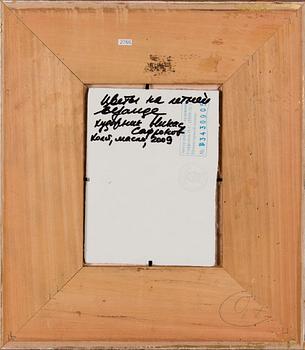 2066
Цветы на летней
веранде
художник Никас
Сафронов
холст, масло, 2009